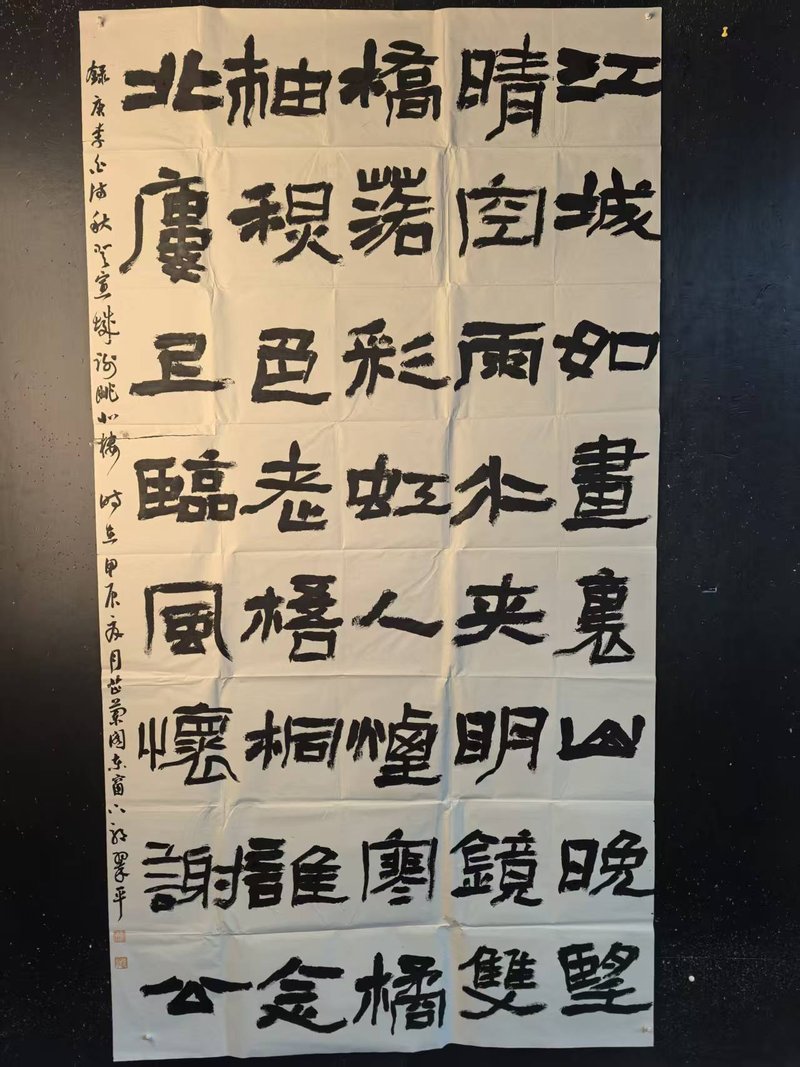 江城如畫裏山晚望
晴空雨水夾明鏡雙
橋落彩虹人煙寒橘
柚秋色老梧桐誰念
北廔上臨風懷謝公
錄唐李白詩秋登宣城謝朓北樓 時在甲辰夏月芷蘭園東窗下翠平